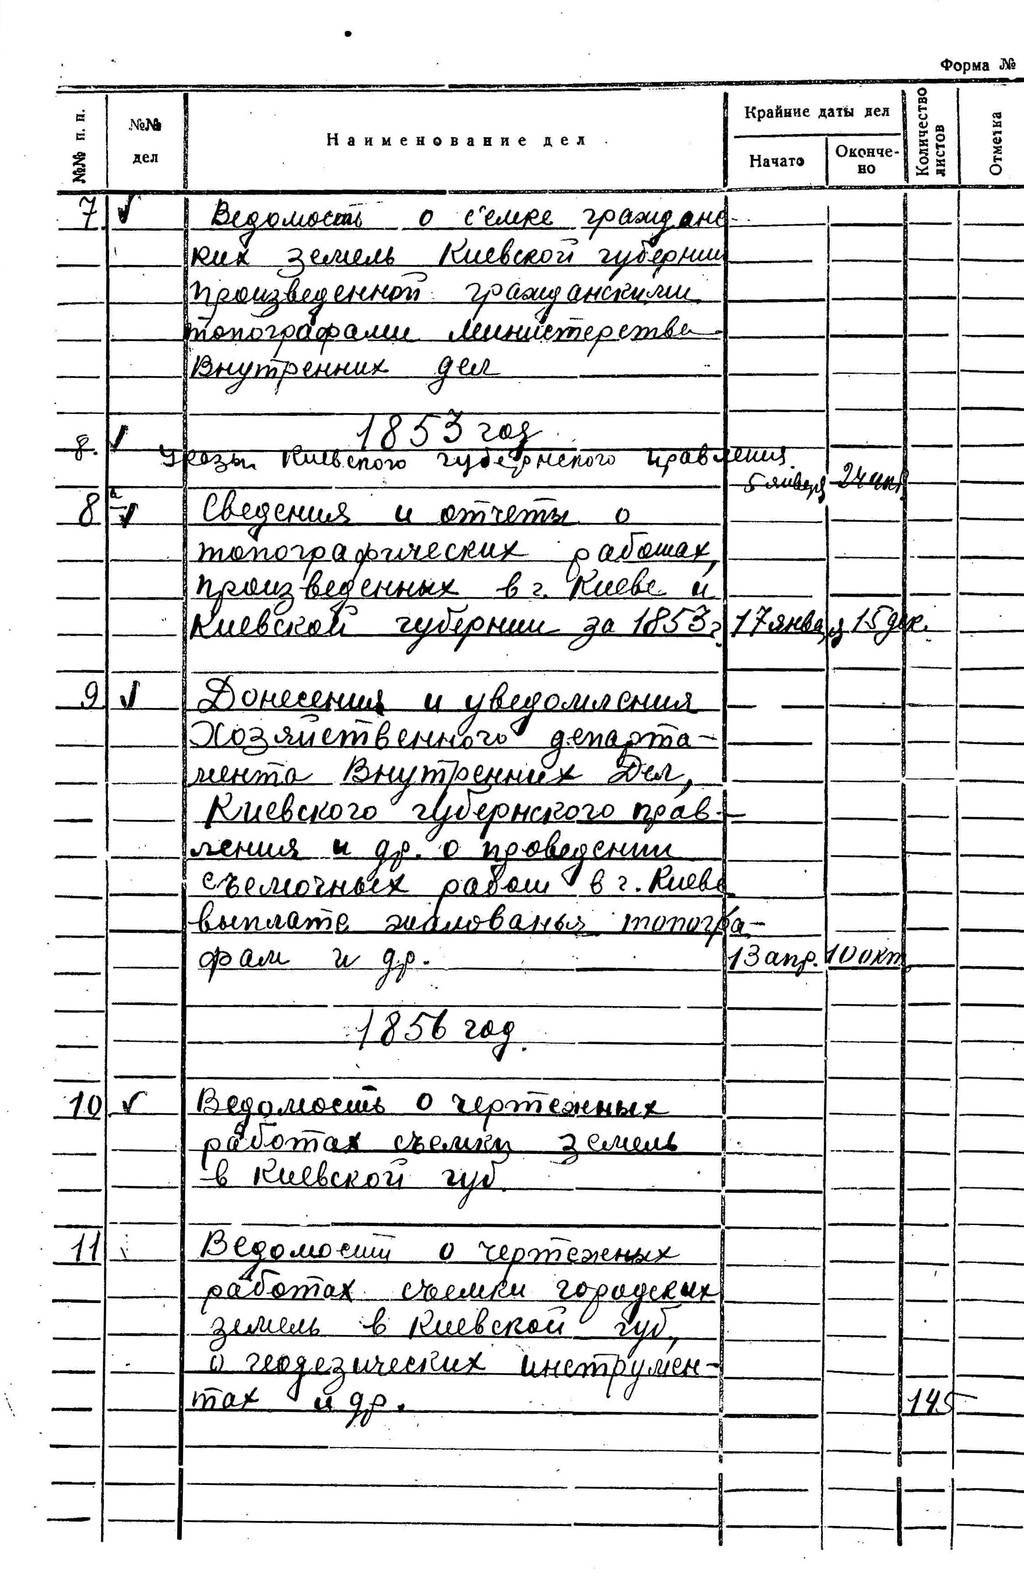 Форма №
№№ п. п.
№№ дел
Наименование дел
Крайние даты дел
Начато
Окончено
Количество листов
Отметка
7 Ведомость о с'емке гражданс
ких земель Киевской губернии
произведенной гражданскими
топографами министерства
Внутренних дел
1853 год
8. Указы Киевского губернского правления
5 января 24
8а Сведения и отчеты о
топографических работах,
произведенных в г. Киеве и
Киевской губернии за 1853 г. 17 января 15 дек.
9 Донесения и уведомления
Хозяйственного департа-
мента Внутренних Дел,
Киевского губернского прав-
ления и др. о проведении
съемочных работ в г. Киеве
выплате жалованья топогра-
фам и др. 13 апр. 10 окт
1856 год.
10 Ведомость о чертежных
работах съемки земель
в Киевской губ.
11 Ведомости о чертежных
работах съемки городских
земель в Киевской губ,
о геодезических инструмен-
тах и др. 145